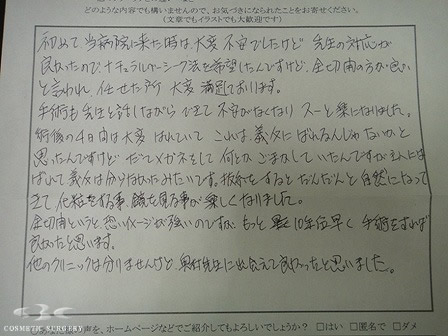 どのような内容でも構いませんので、お気づきになられたことをお寄せください。
（文章でもイラストでも大歓迎です）
初めて当病院に来た時は、大変不安でしたけど 先生の対応が
良かったので、ナチュラルベーシック法を希望したんですけど、全切開の方が良い
と言われ、任せた所 大変満足しております。
手術も先生と話しながらできて不安がなくなり スーと楽になりました。
術後の4日間は大変はれていて これは、義父にばれるんじゃないかと
思ったんですけど だてメガネをして 何とかごまかしていたんですが主人には
ばれて義父は分らなかったみたいです。抜糸をするとだんだんと自然になって
きて 化粧をする事、鏡を見る事が楽しくなりました。
全切開というと、恐いイメージが強いのですが、もっと 10年位早く 手術をすれば
良かったと思います。
他のクリニックは分りませんけど、先生に出会えて良かったと思いました。
COSMETIC SURGERY
声を、ホームページなどでご紹介してもよろしいでしょうか？ □はい □匿名で □ダメ